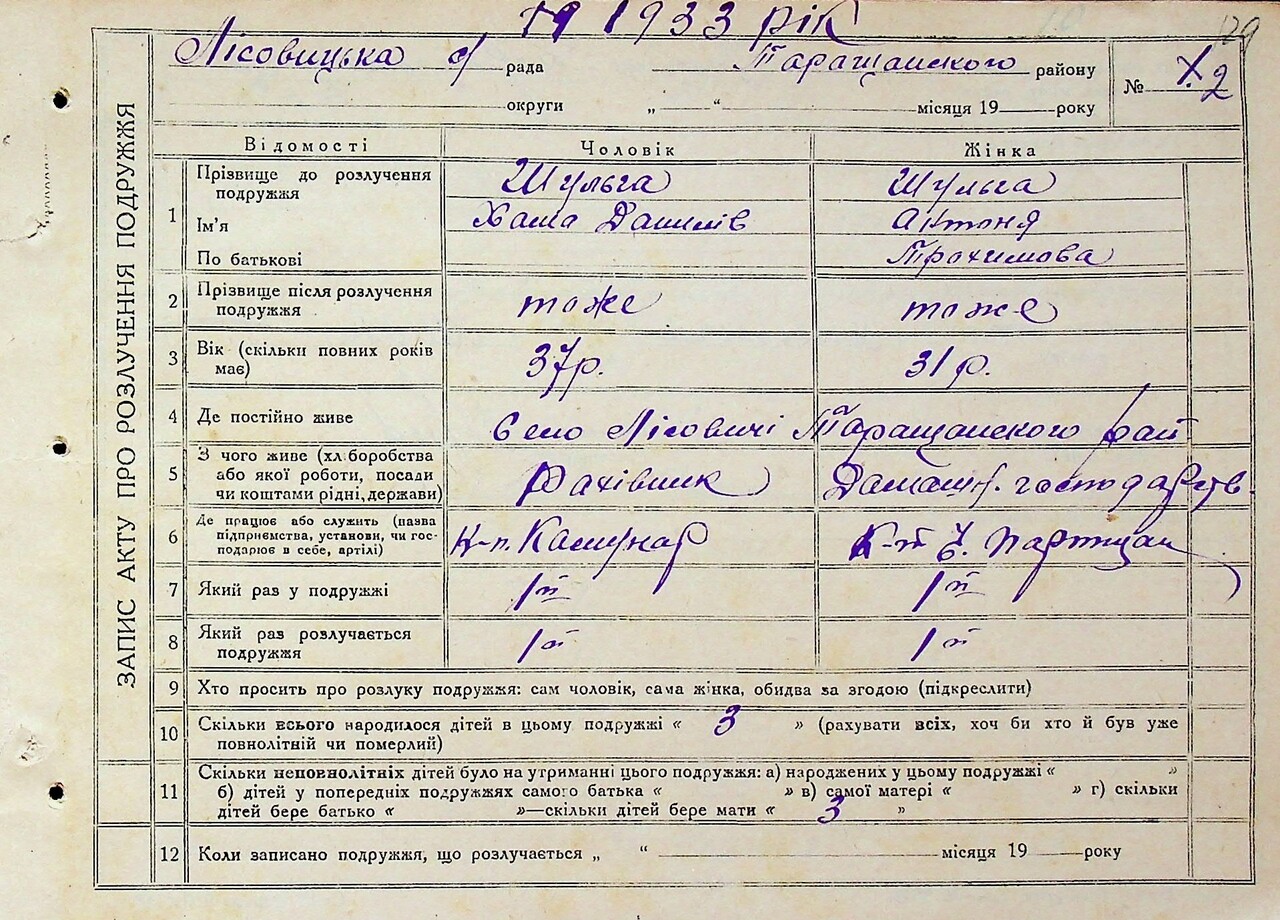 1933 рік
129
Лісовицька с/ рада Таращанского району
№ 2
округи „ “ місяця 19 року
ЗАПИС АКТУ ПРО РОЗЛУЧЕННЯ ПОДРУЖЖЯ
Відомості Чоловік Жінка
1 Прізвище до розлучення подружжя Шульга Шульга
Ім'я Хома Данилів Актоня
По батькові Трохимова
2 Прізвище після розлучення подружжя тоже тоже
3 Вік (скільки повних років має) 37р. 31 р.
4 Де постійно живе Село Лісовичі Таращанского рай
5 З чого живе (хл боробства або якої роботи, посади чи коштами рідні, держави) Рахівник Дамашн. господарств.
6 Де працює або служить (назва підприємства, установи, чи господарює в себе, артілі) К-п. Комунар К-т Ч. Партизан
7 Який раз у подружжі 1й 1й
8 Який раз розлучається подружжя 1й 1й
9 Хто просить про розлуку подружжя: сам чоловік, сама жінка, обидва за згодою (підкреслити)
10 Скільки всього народилося дітей в цьому подружжі « 3 » (рахувати всіх, хоч би хто й був уже
повнолітній чи померлий)
11 Скільки неповнолітніх дітей було на утриманні цього подружжя: а) народжених у цьому подружжі « »
б) дітей у попередніх подружжях самого батька « » в) самої матері « » г) скільки
дітей бере батько « »—скільки дітей бере мати « 3 »
12 Коли записано подружжя, що розлучається „ “ місяця 19 року